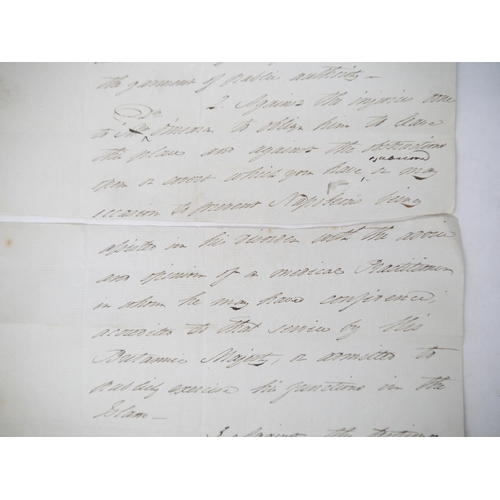 the garment of Public authority —
2. Against the injuries done
Dr
to Mr Omeara to oblige him to leave
the place and against the restrictions
pursued
sem a most which you have, or may
occasion to prevent Napoleon being
assisted in his disorder with the advice
and opinion of a medical Practitioner
in whom he may have confidence,
according to that service by his
Britannic Majesty, or admitted to
Publicly exercise his functions in the
Islam —
3. Against the